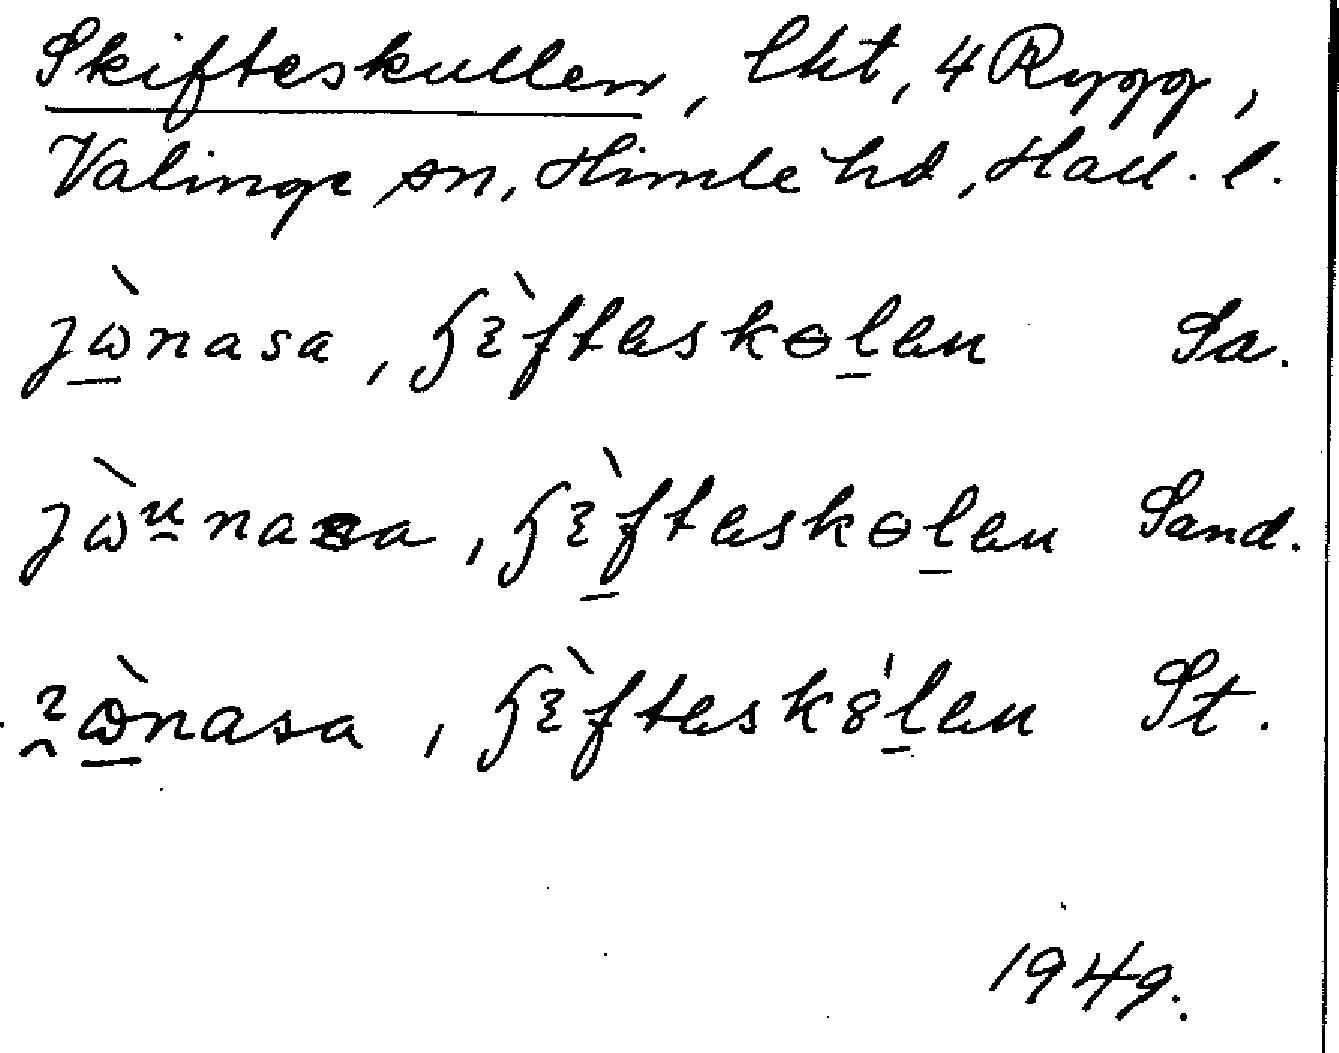 Skifteskullen, lht, 4 Rygg,
Valinge sn, Himle hd, Hall. l.
jὼnasa, ɧɛ̀fteskɵlen Sa.
jὼunasa, ɧɛ̀fteskɵlen Sand.
ὼnasa, ɧɛ̀ftesk8len St.
1949.